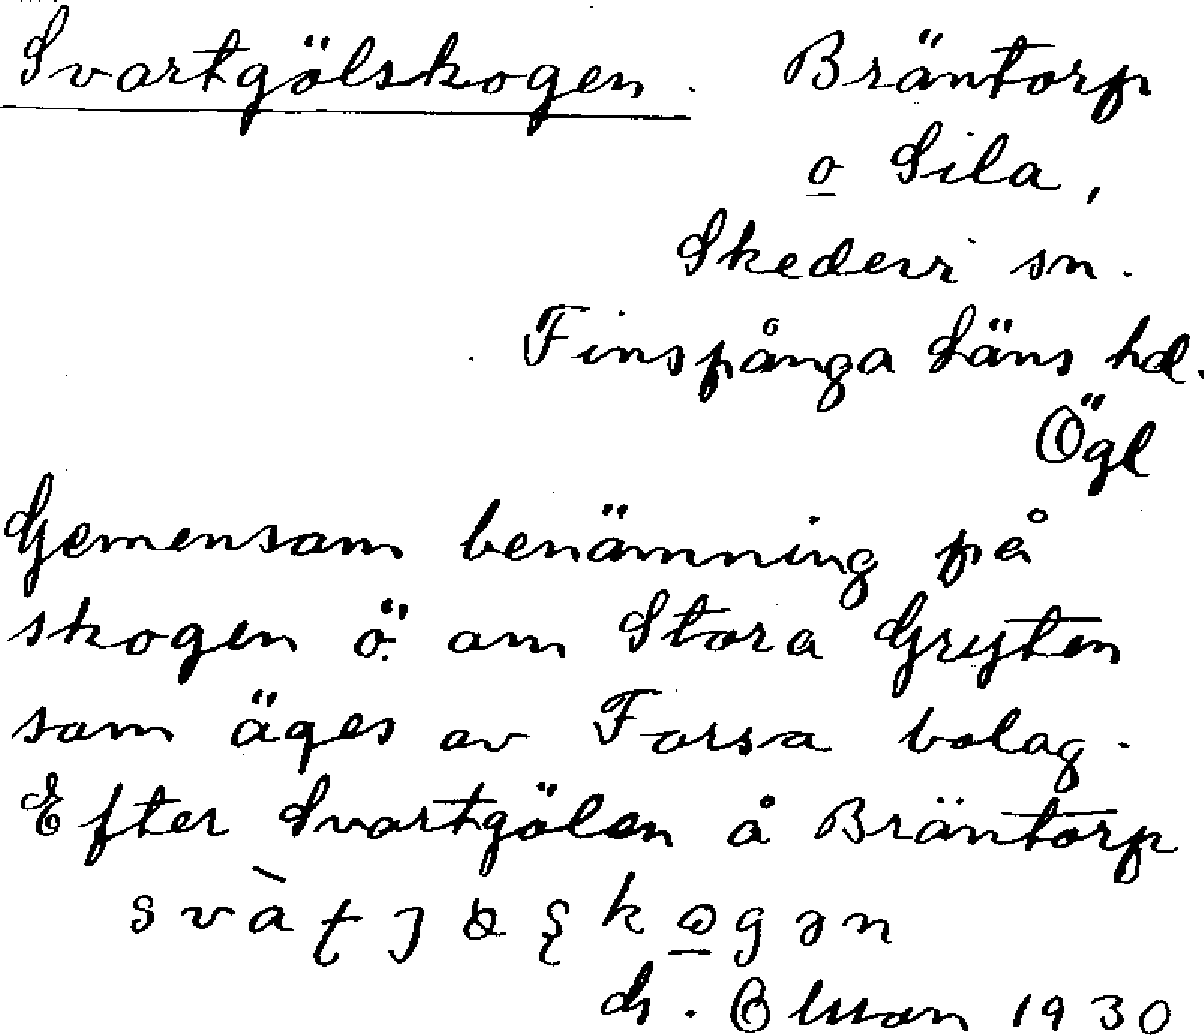 Svartgölskogen. Bräntorp
o Sila,
Skedevi sn.
Finspånga läns hd.
Ögl
Gemensam benämning på
skogen ö. om Stora Gryten
som äges av Forsa bolag.
Efter Svartgölen å Bräntorp
Olsson 1930